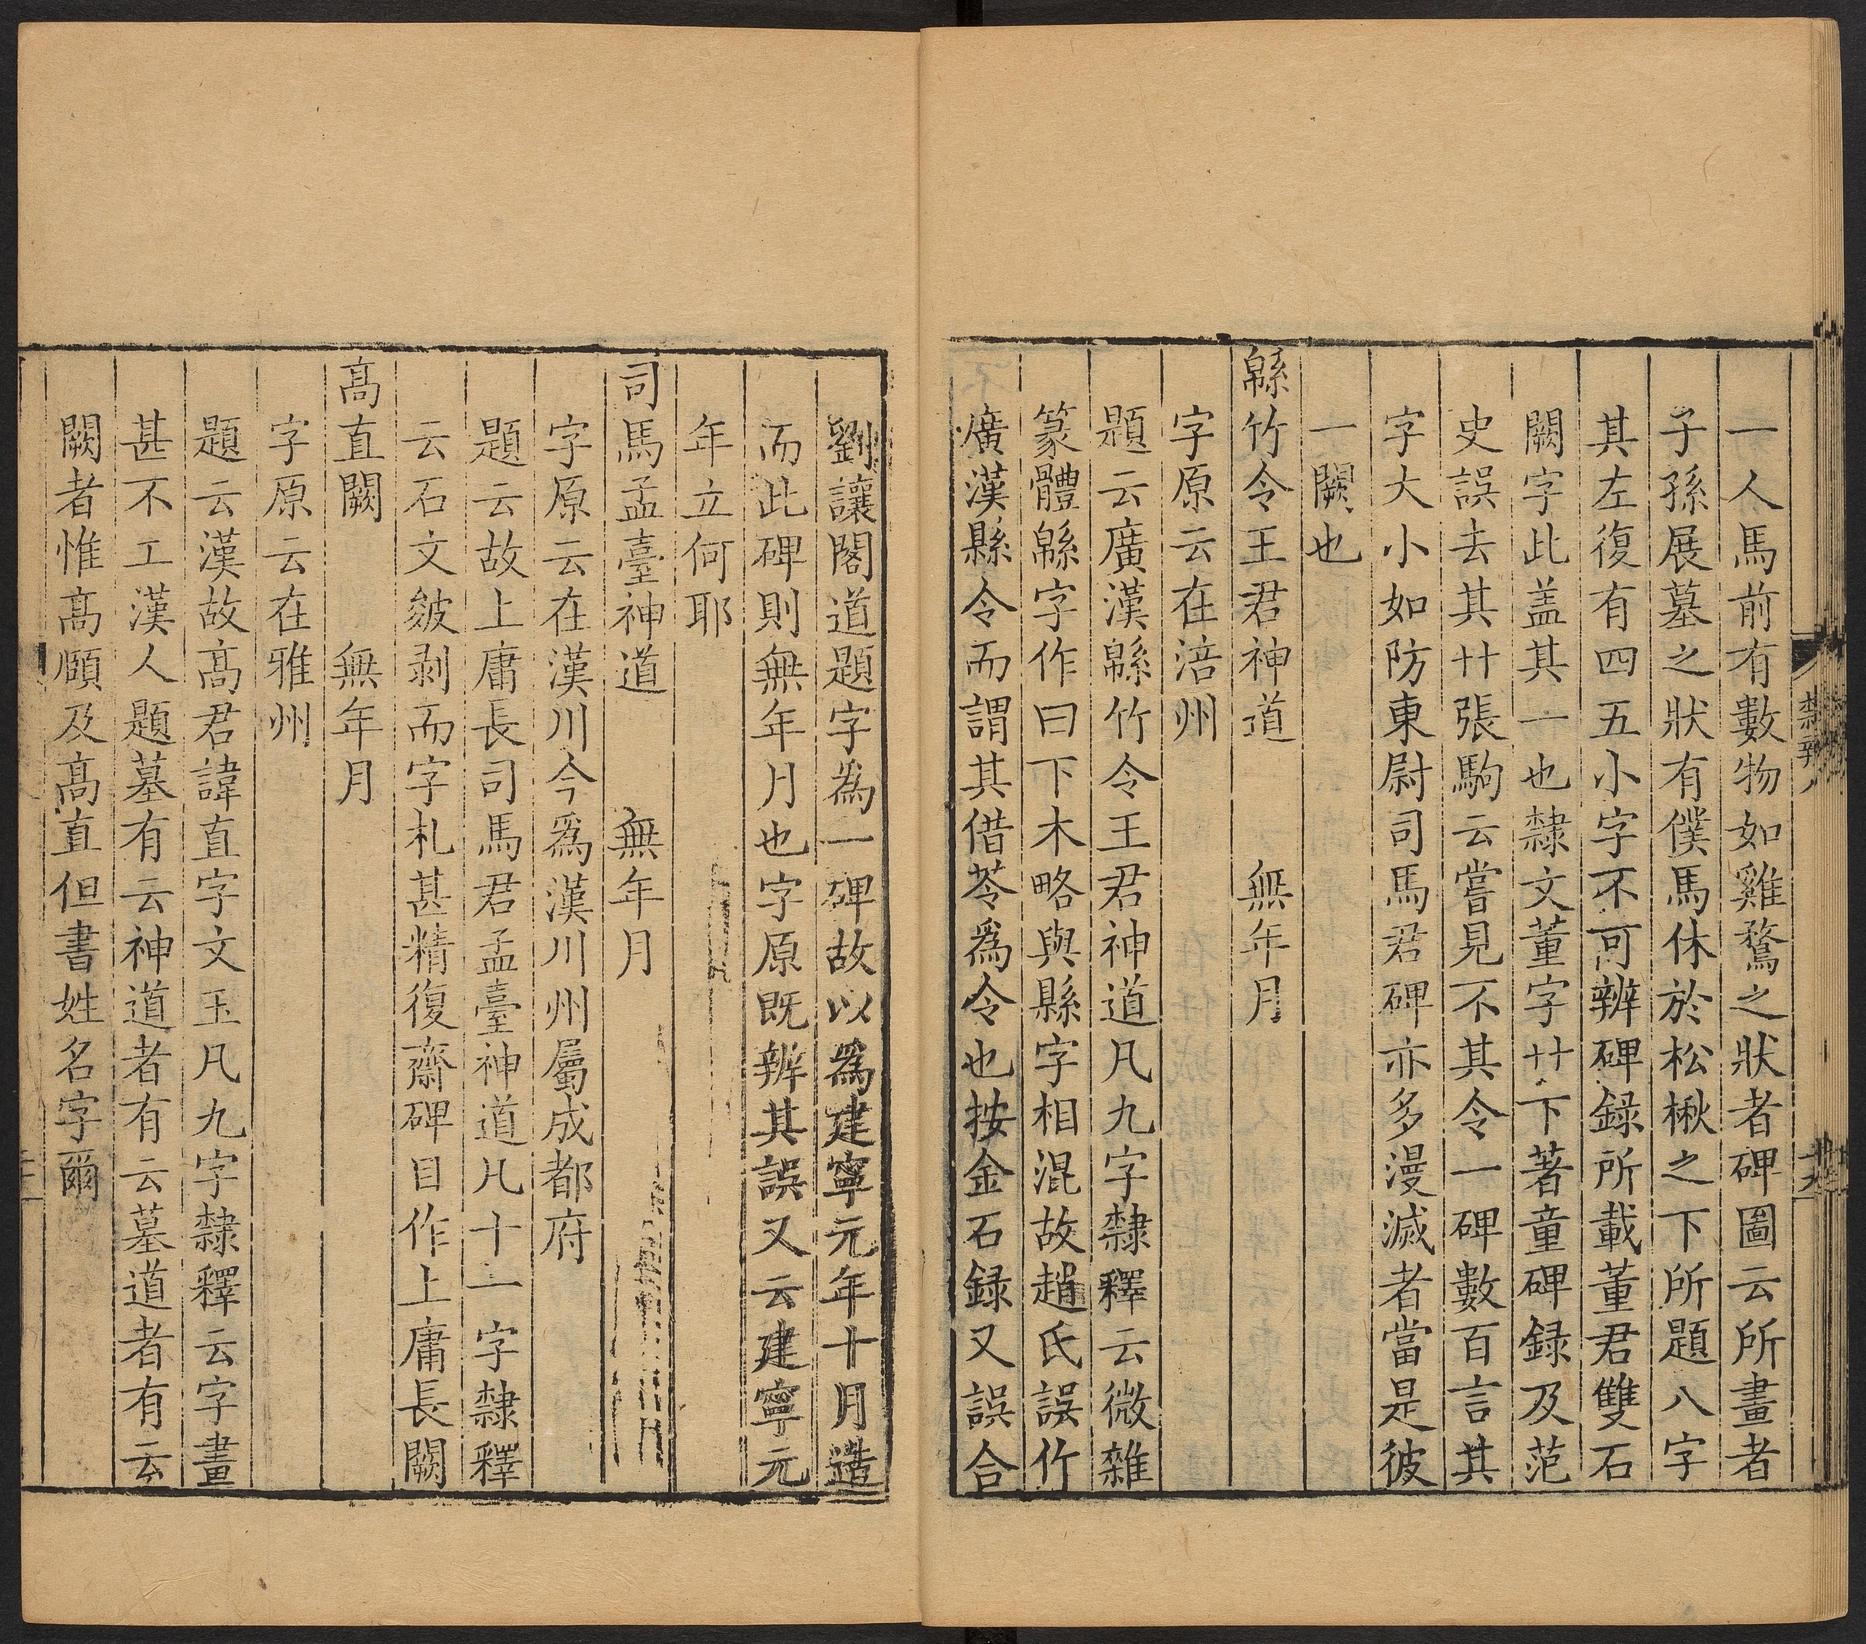 一人馬前有數物如雞鶩之狀者碑圖云所畫者
子孫展墓之狀有僕馬休於松楸之下所題八字
其左復有四五小字不可辨碑録所載董君雙石
闕字此盖其一也隸文董字廿下著童碑録及范
史誤去其廿張駒云嘗見不其令一碑數百言其
字大小如防東尉司馬君碑亦多漫滅者當是彼
一闕也
緜竹令王君神道 無年月
字原云在涪州
題云廣漢緜竹令王君神道凡九字隸釋云微雜
篆體緜字作曰下木略與縣字相混故趙氏誤竹
廣漢縣令而謂其借苓爲令也按金石録又誤合
劉讓閣道題字爲一碑故以爲建寧元年十月造
而此碑則無年月也字原既辨其誤又云建寧元
年立何耶
司馬孟臺神道 無年月
字原云在漢川今爲漢川州屬成都府
題云故上庸長司馬君孟臺神道凡十一字隸釋
云石文皴剥而字札甚精復齋碑目作上庸長闕
高直闕 無年月
字原云在雅州
題云漢故高君諱直字文玉凡九字隸釋云字畫
甚不工漢人題墓有云神道者有云墓道者有云
闕者惟高頤及高直但書姓名字爾